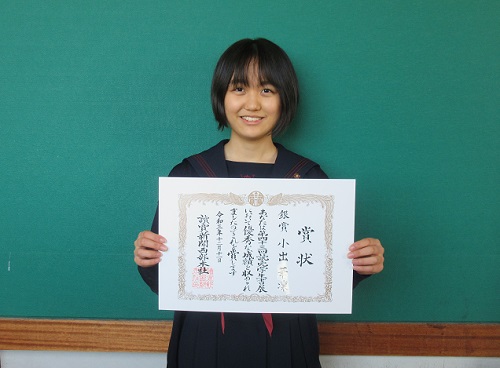 賞状
銀賞 小出
あなたは第四十三回読売学生書展
において優秀な成績を収められ
ましたのでこれを賞します
令和三年十二月
読売新聞西部本社